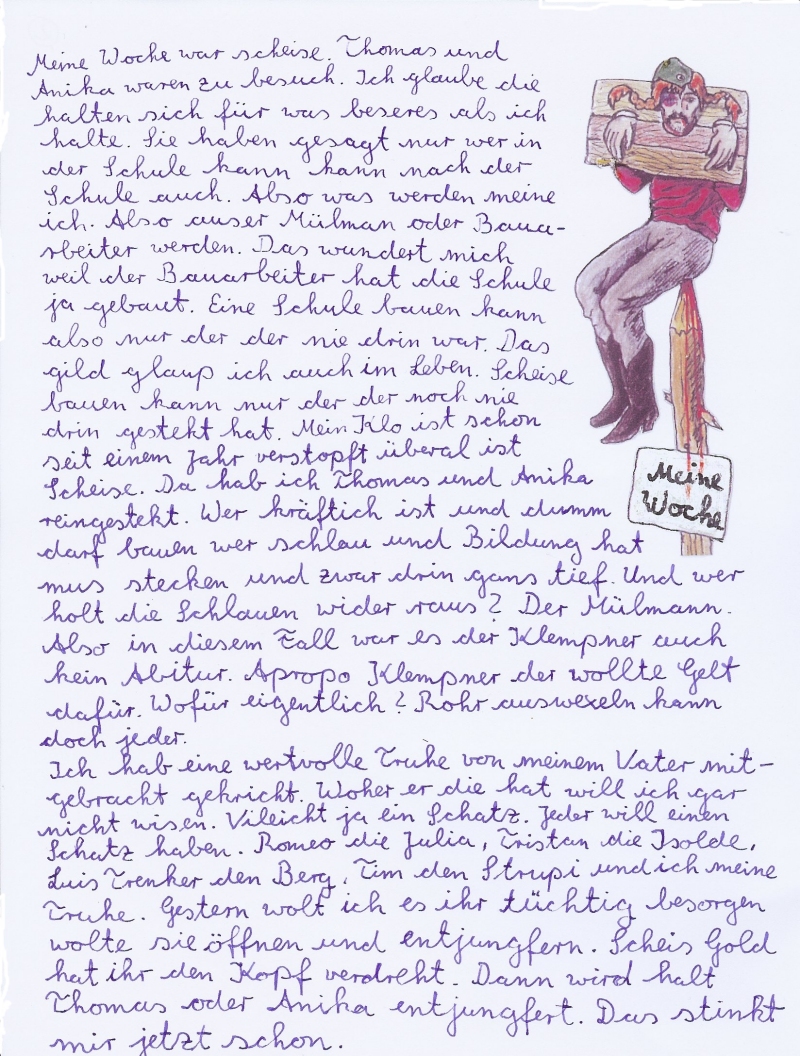 Meine Woche war scheise. Thomas und
Anika waren zu besuch. Ich glaube die
halten sich für was beseres als ich
halte. Sie haben gesagt nur wer in
der Schule kann kann nach der
Schule auch. Abso was werden meine
ich. Also auser Mülman oder Baua-
rbeiter werden. Das wundert mich
weil der Bauarbeiter hat die Schule
ja gebaut. Eine Schule bauen kann
also nur der der nie drin war. Das
gild glaup ich auch im Leben. Scheise
bauen kann nur der der noch nie
drin gestekt hat. Mein Klo ist schon
seit einem Jahr verstopft überal ist
Scheise. Da hab ich Thomas und Anika
reingestekt. Wer kräftich ist und dumm
darf bauen wer schlau und Bildung hat
mus stecken und zwar drin gans tief. Und wer
holt die Schlauen wider raus? Der Mülmann.
Also in diesem Fall war es der Klempner auch
kein Abitur. Apropo Klempner der wollte Gelt
dafür. Wofür eigentlich? Rohr auswexeln kann
doch jeder.
Ich hab eine wertvolle Truhe von meinem Vater mit-
gebracht gekricht. Woher er die hat will ich gar
nicht wisen. Vileicht ja ein Schatz. Jeder will einen
Schatz haben. Romeo die Julia, Tristan die Isolde,
Luis Trenker den Berg, Tim den Strupi und ich meine
Truhe. Gestern wolt ich es ihr tüchtig besorgen
wolte sie öffnen und entjungfern. Scheis Gold
hat ihr den Kopf verdreht. Dann wird halt
Thomas oder Anika entjungfert. Das stinkt
mir jetzt schon.
Meine
Woche